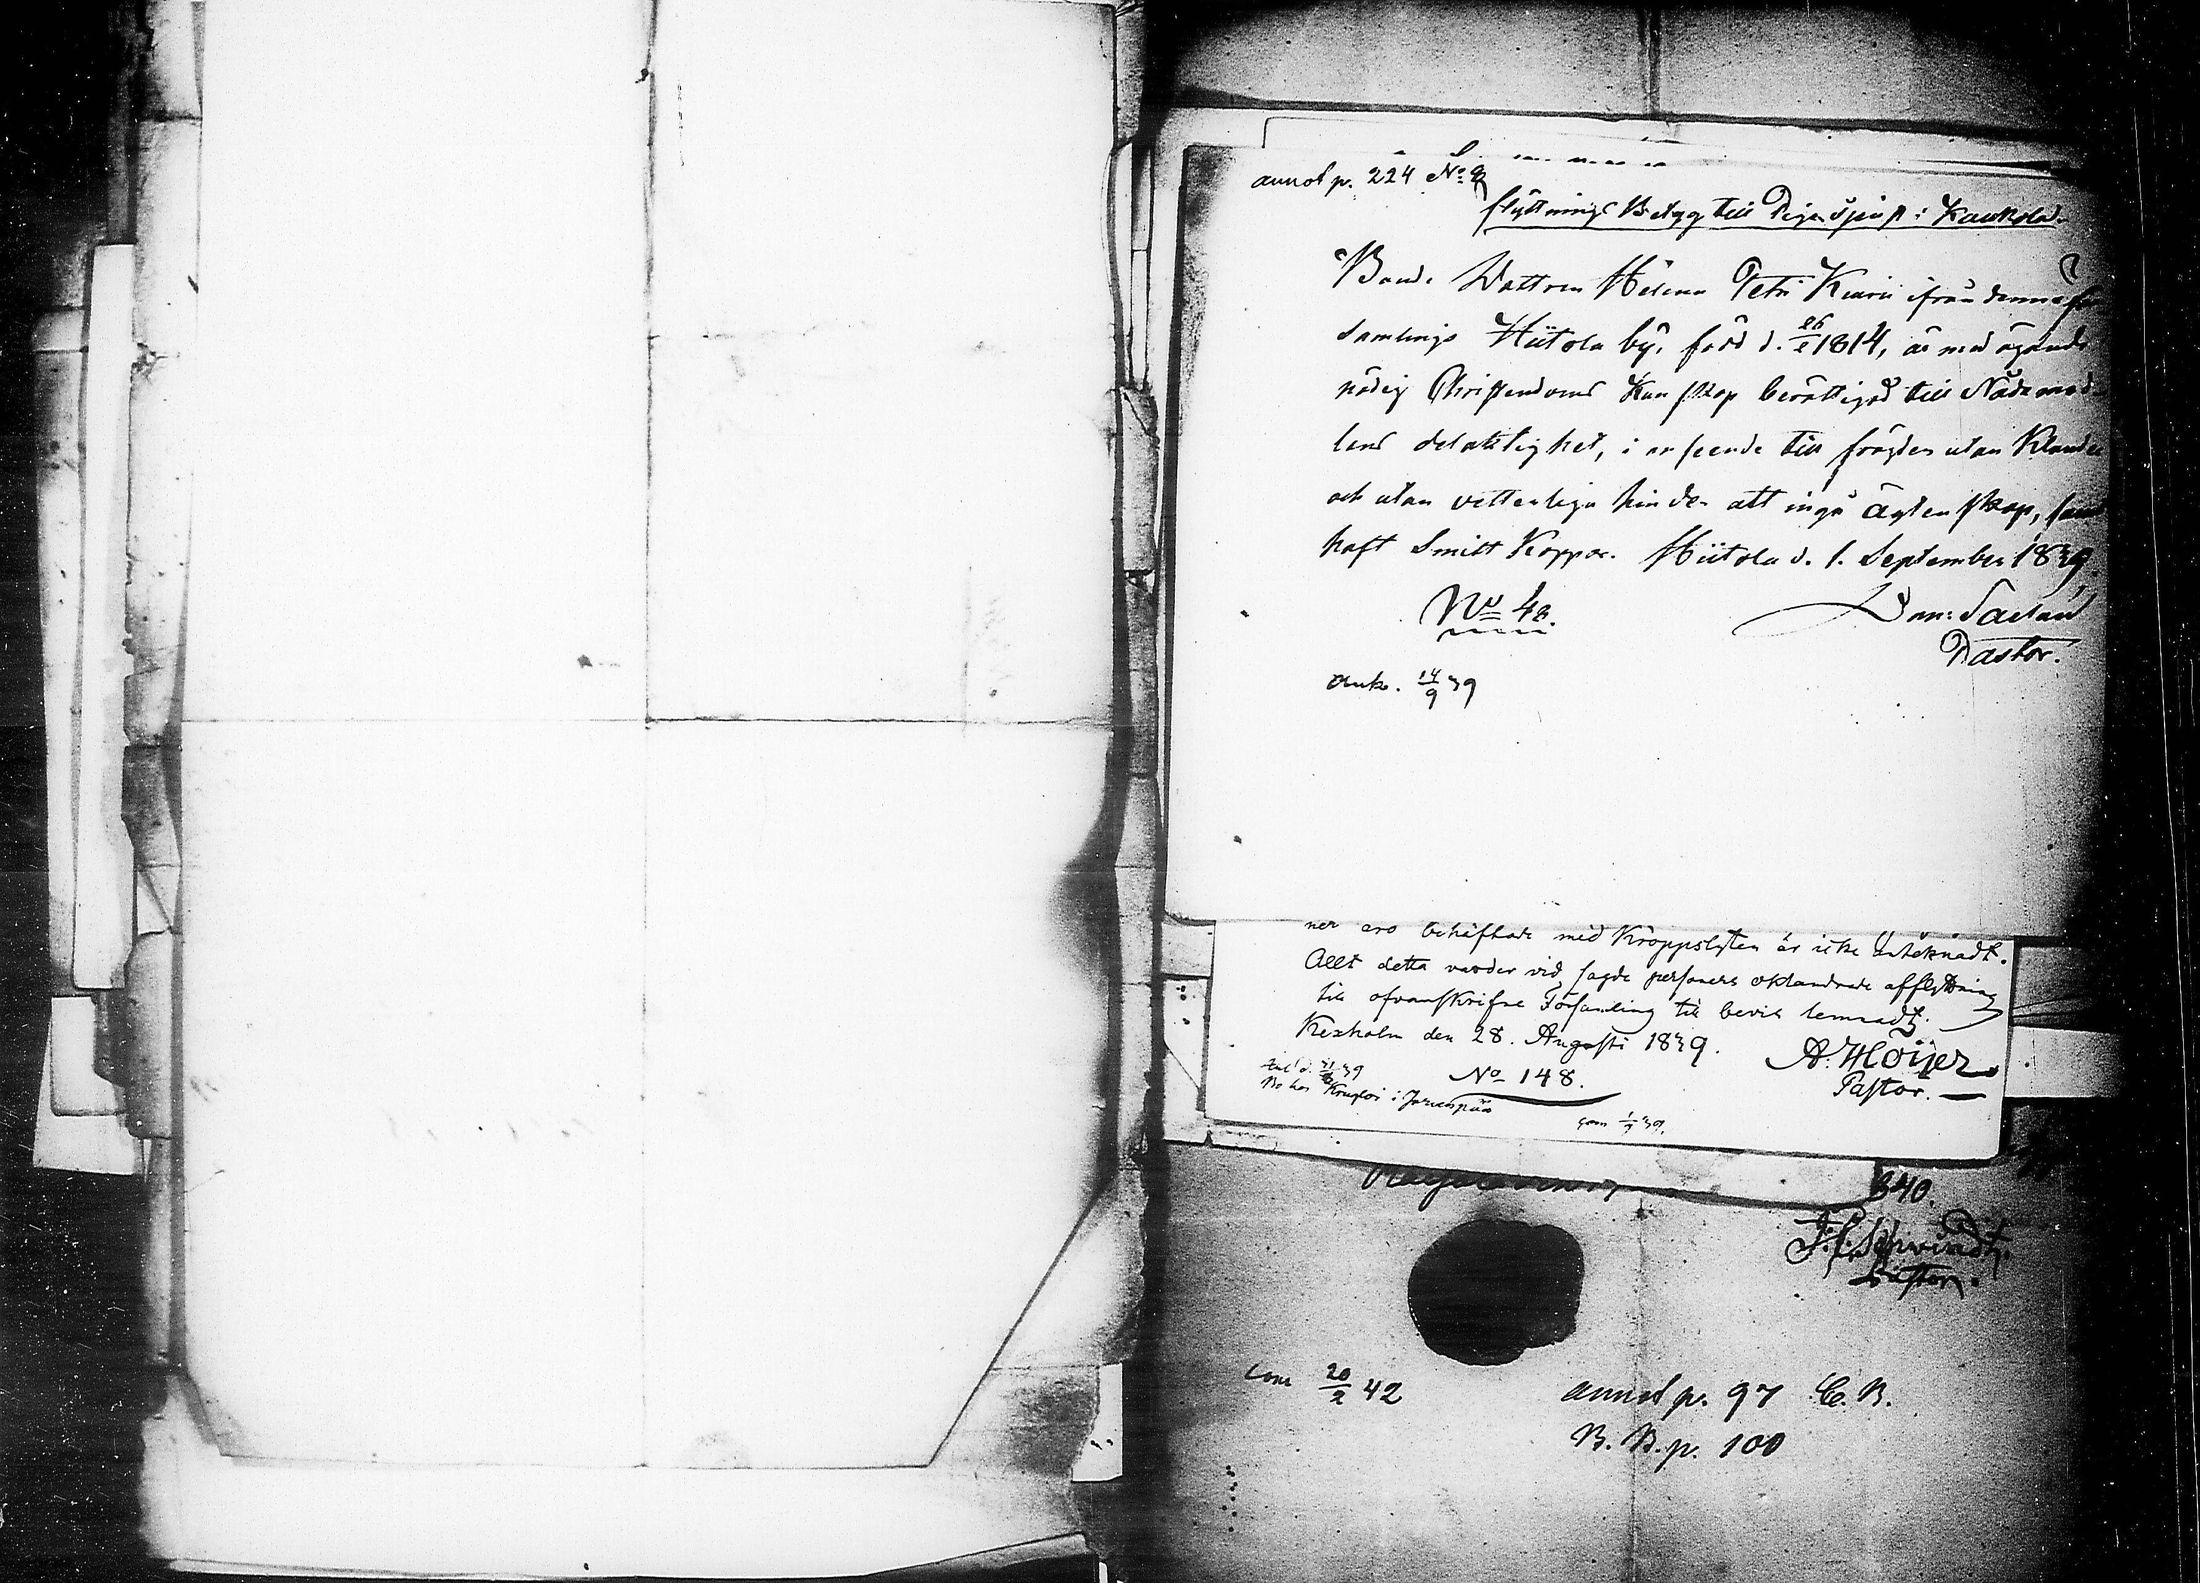 annot p. 224 No 8
flyttnings Betyg till Pigan i Kaukola.
Bonde Dottren Helena Petri Kiuru ifrån denna för
samlings Hiitola by, född d. 26/2 1814, är med ägande
nödig Christendoms Kunskap berättigad till Nådemed-
lens delaktighet, i anseende till frägden utan Klander
och utan vetterliga hinder att ingå Ägtenskap, samt
haft Smitt Koppor. Hiitola d. 1. September 1839.
No 48.
Pastor.
Ank. 14/9 39
ner äro behäftade med Kroppslyten är icke antecknadt.
Allt detta varder vid sagde personers oklandrade afflyttning
till ofvanskrifne Församling till bevis lemnadt.
Kexholm den 28. Augusti 1839.
A. Höijer
No 148.
Pastor.
Bo hos i Järvenpää
com 1/9 39.
840.
J. C. Schwindt.
Pastor.
com 20/2 42
annot p. 97 C. B.
B. B. p. 100